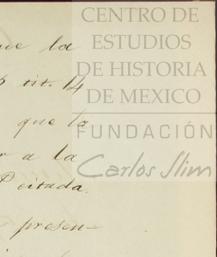 CENTRO DE
ESTUDIOS
DE HISTORIA
DE MEXICO
FUNDACIÓN
Carlos Slim
que la
tit. 14
que lo
r a la
Citada.
presen-